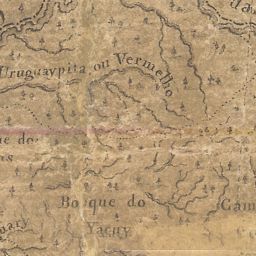 Uruguaypita ou Vermelho
ue do
as
Bosque do
Yacuy
Gam
uary